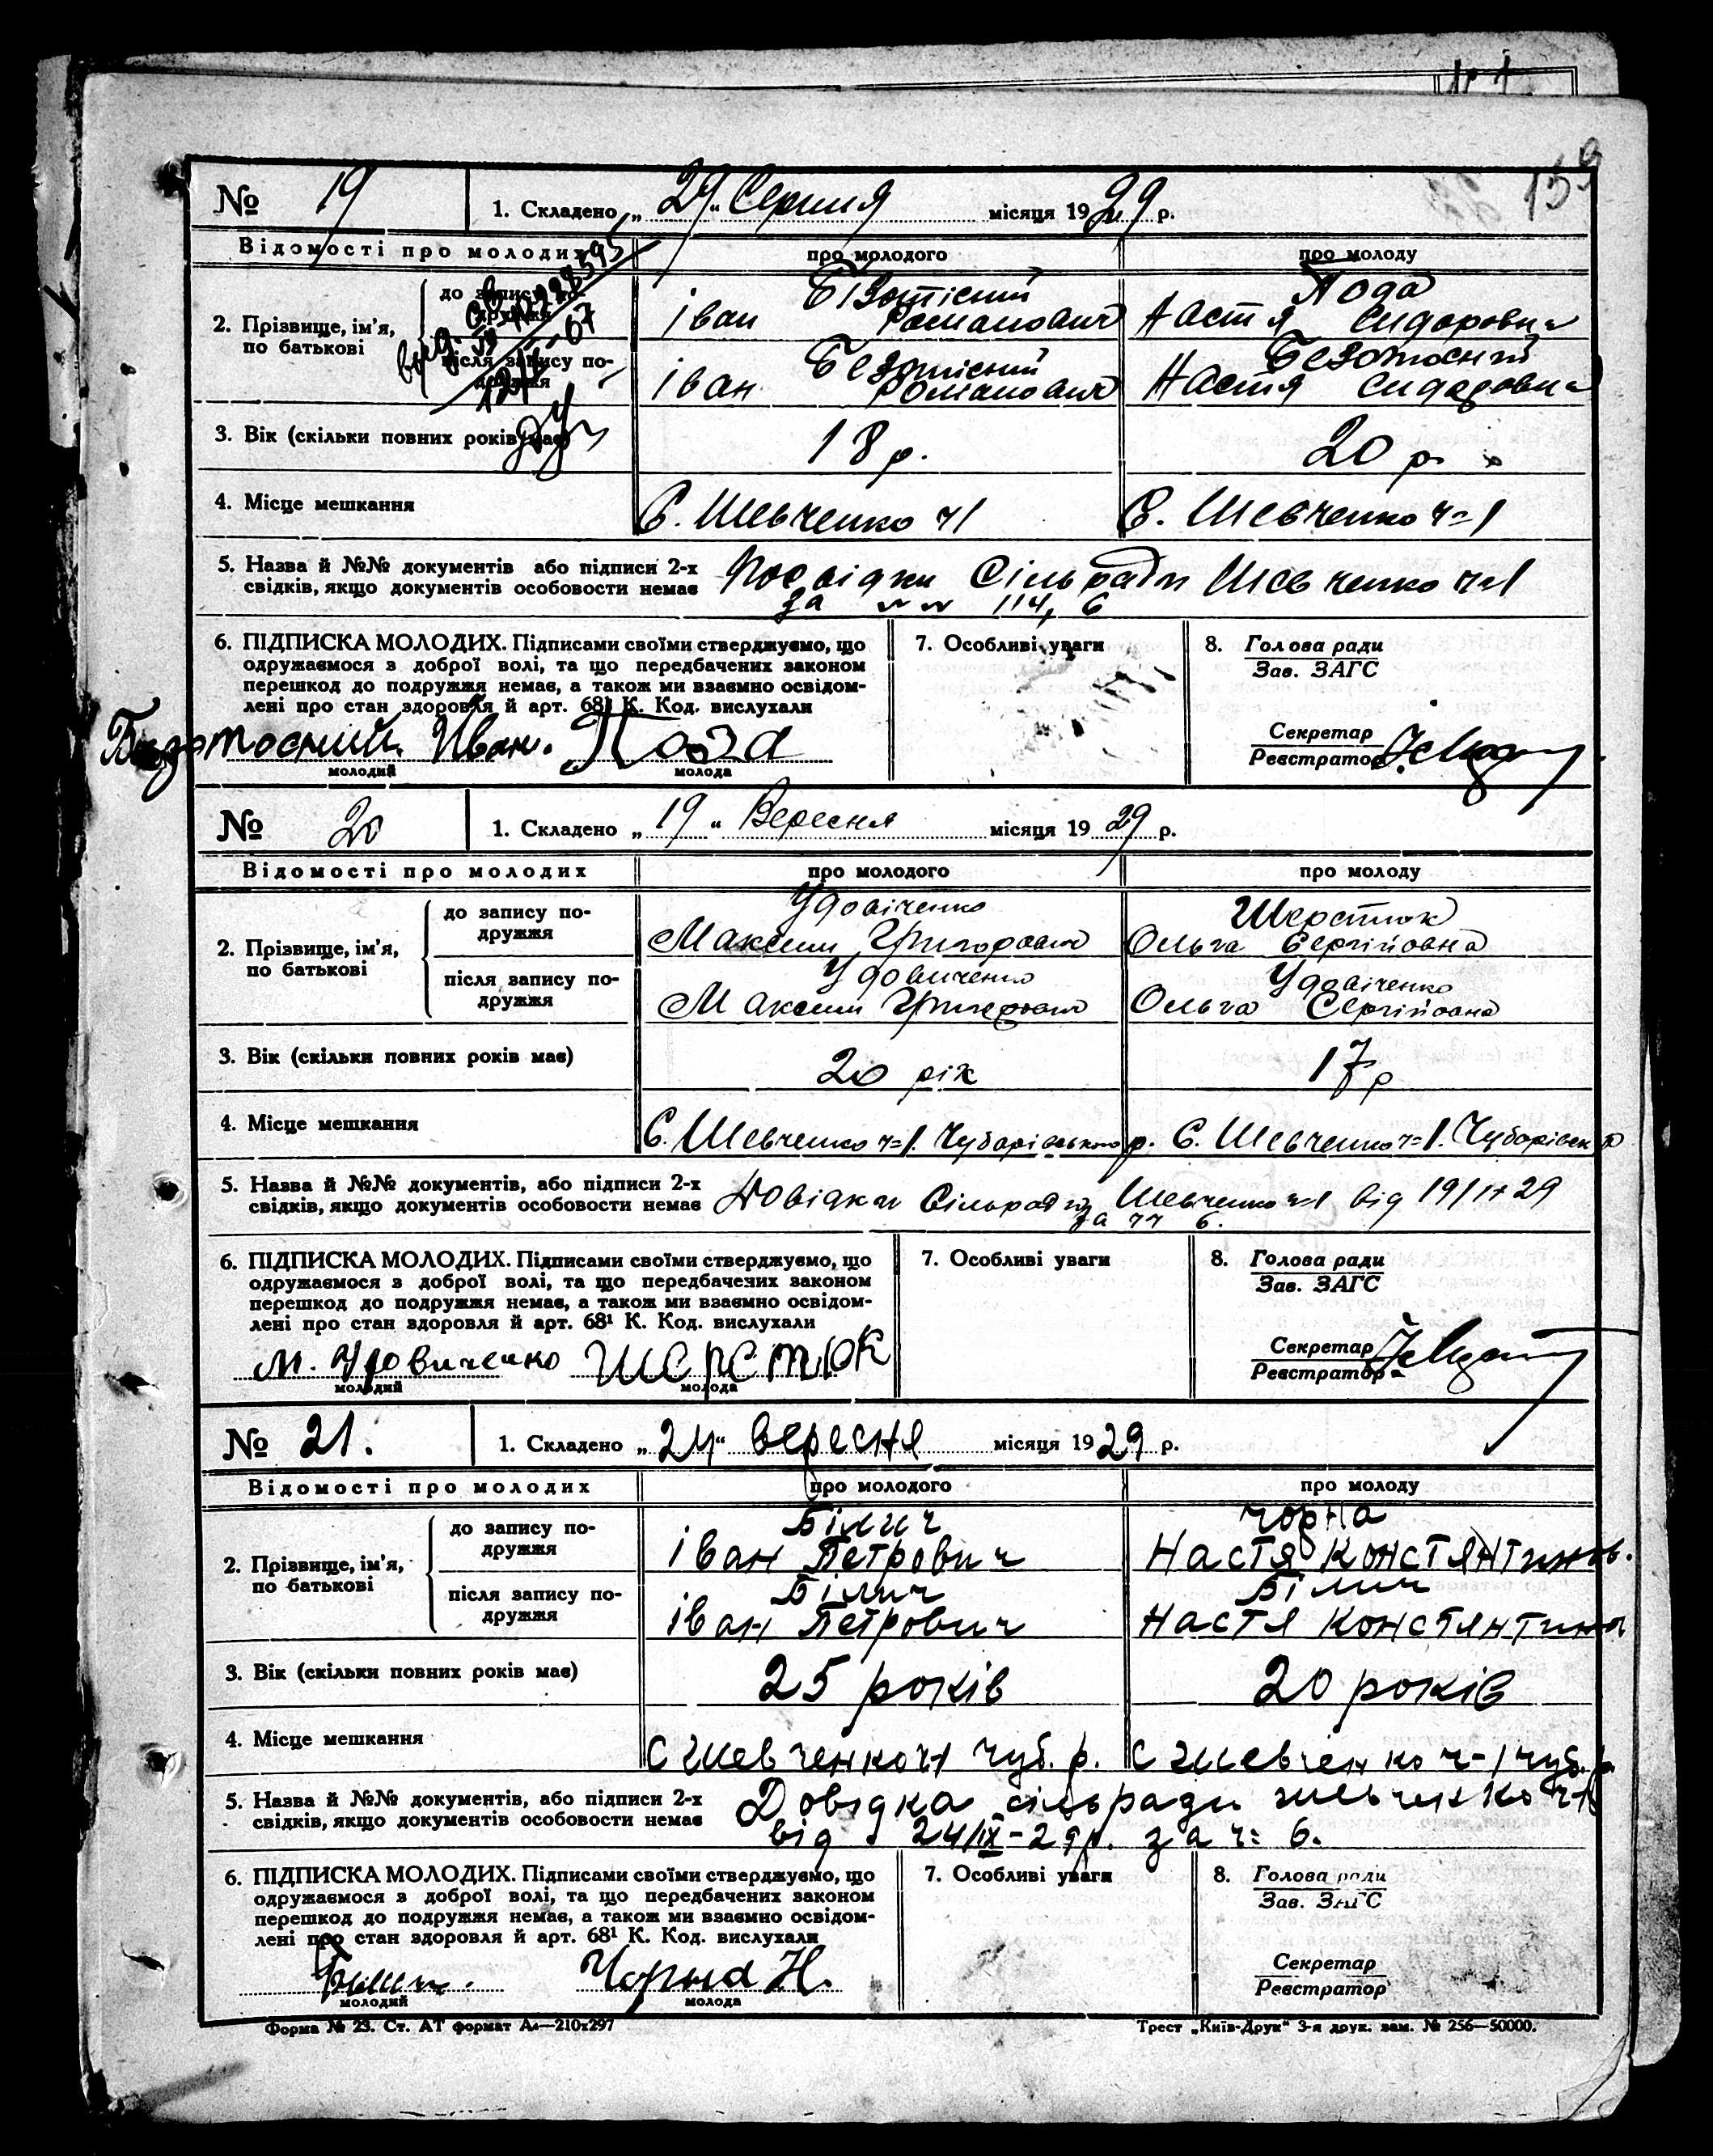 159
№ 19 1. Складено „ 29 “ Серпня місяця 19 29 р.
Відомості про молодих про молодого про молоду
до запису по-
дружжя
2. Прізвище, ім'я,
по батькові
після запису по-
дружжя
Безотісний Пода
Іван Романович Настя Сидоровна
Безотісний Безотосний
Іван Романович Настя Сидоровна
3. Вік (скільки повних років має) 18 р. 20 р.
4. Місце мешкання С. Шевченко ч1 С. Шевченко ч=1
5. Назва й №№ документів або підписи 2-х
свідків, якщо документів особовости немає
Посвідки Сільради Шевченко ч=1
за 114, 6
6. ПІДПИСКА МОЛОДИХ. Підписами своїми стверджуємо, що
одружаємося з доброї волі, та що передбачених законом
перешкод до подружжя немає, а також ми взаємно освідом-
лені про стан здоровля й арт. 68¹ К. Код. вислухали
Безотосний Иван. Пода
молодий молода
7. Особливі уваги
8. Голова ради
Зав. ЗАГС
Секретар
Реєстратор
№ 20 1. Складено „ 19 “ Вересня місяця 19 29 р.
Відомості про молодих про молодого про молоду
до запису по-
дружжя
2. Прізвище, ім'я,
по батькові
після запису по-
дружжя
Удовіченко Шерстюк
Максим Григорович Ольга Сергійовна
Удовиченко Удовіченко
Максим Григорович Ольга Сергійовна
3. Вік (скільки повних років має) 20 рік 17 р
4. Місце мешкання С. Шевченко ч=1. Чубарівського р. С. Шевченко ч=1. Чубарівськ р
5. Назва й №№ документів, або підписи 2-х
свідків, якщо документів особовости немає
Довідки Сільради Шевченко ч1 від 19/ІХ 29
за чч 6.
6. ПІДПИСКА МОЛОДИХ. Підписами своїми стверджуємо, що
одружаємося з доброї волі, та що передбачених законом
перешкод до подружжя немає, а також ми взаємно освідом-
лені про стан здоровля й арт. 68¹ К. Код. вислухали
М. Удовиченко Шерстюк
молодий молода
7. Особливі уваги
8. Голова ради
Зав. ЗАГС
Секретар
Реєстратор
№ 21. 1. Складено „ 24 “ вересня місяця 19 29 р.
Відомості про молодих про молодого про молоду
до запису по-
дружжя
2. Прізвище, ім'я,
по батькові
після запису по-
дружжя
Білич чорна
іван Петрович Настя Констянтинов.
Білич Білич
іван Петрович Настя Констянтинов
3. Вік (скільки повних років має) 25 років 20 років
4. Місце мешкання с шевченко ч1 чуб. р. с шевченко ч-1 чуб. р.
5. Назва й №№ документів, або підписи 2-х
свідків, якщо документів особовости немає
Довідка сільради шевченко ч-1
від 24/ІХ-29р. за ч: 6.
6. ПІДПИСКА МОЛОДИХ. Підписами своїми стверджуємо, що
одружаємося з доброї волі, та що передбачених законом
перешкод до подружжя немає, а також ми взаємно освідом-
лені про стан здоровля й арт. 68¹ К. Код. вислухали
Чорна Н.
молодий молода
7. Особливі уваги
8. Голова ради
Зав. ЗАГС
Секретар
Реєстратор
Форма № 23. Ст. АТ формат А₄—210х297 Трест „Київ-Друк“ 3-я друк. зам. № 256—50000.